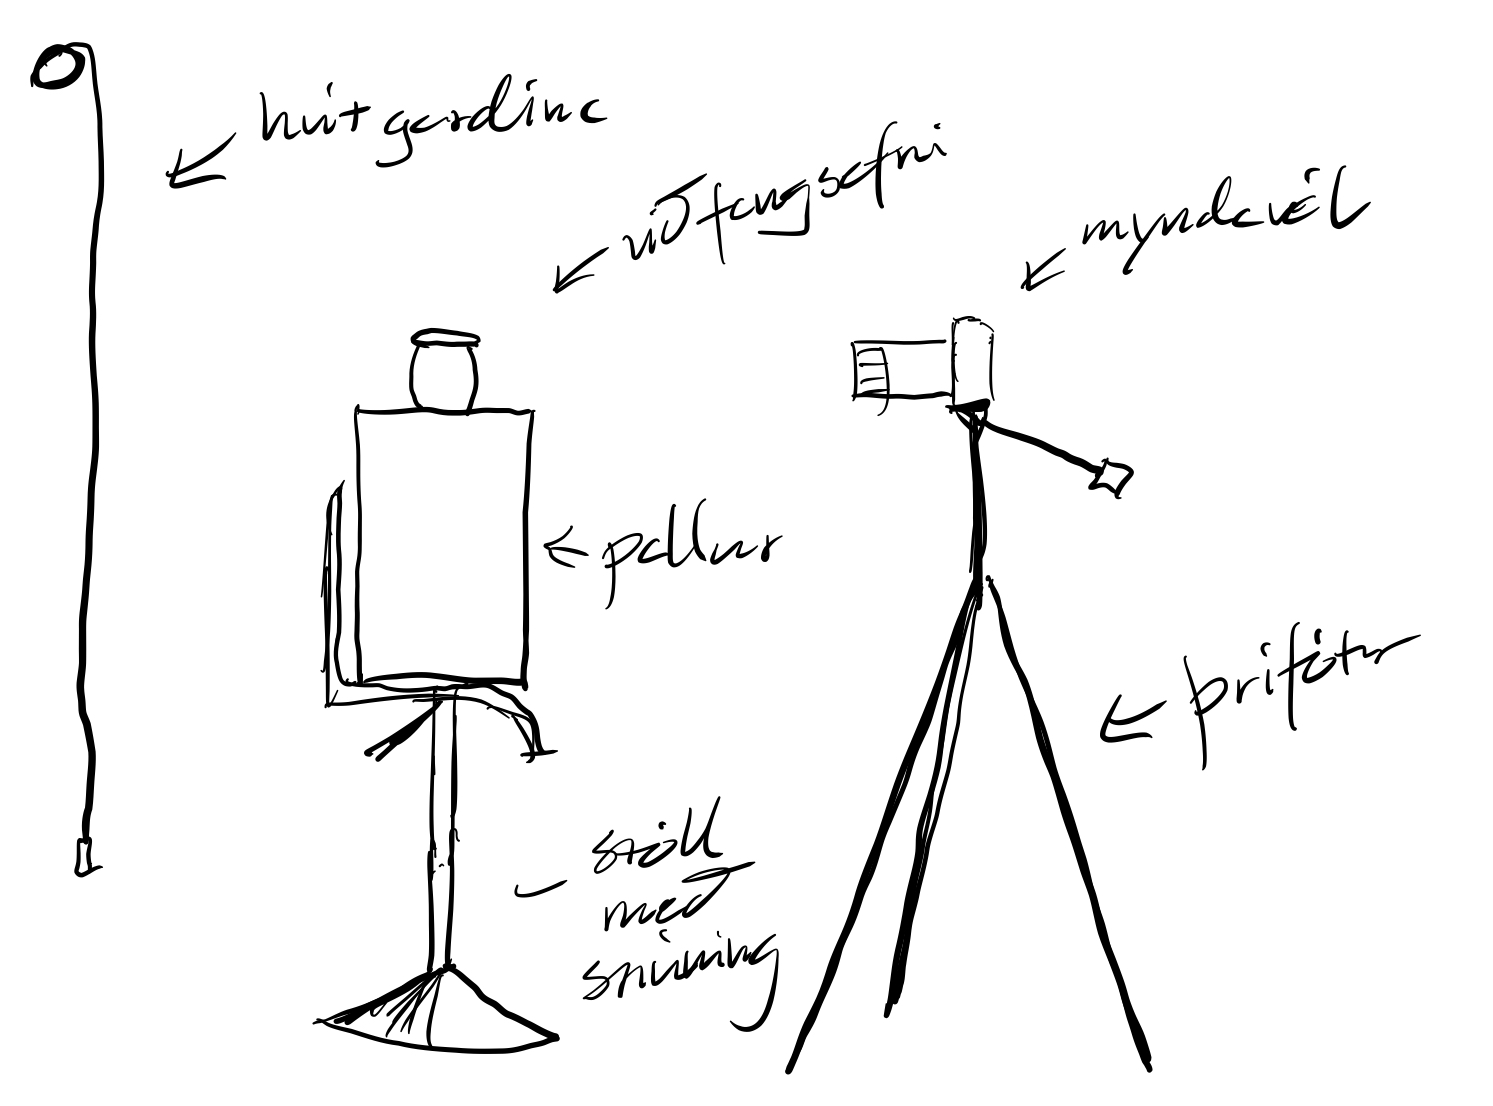 hvít gardína
viðfangsefni
myndavél
pallur
þrífótur
stóll
með
snúning